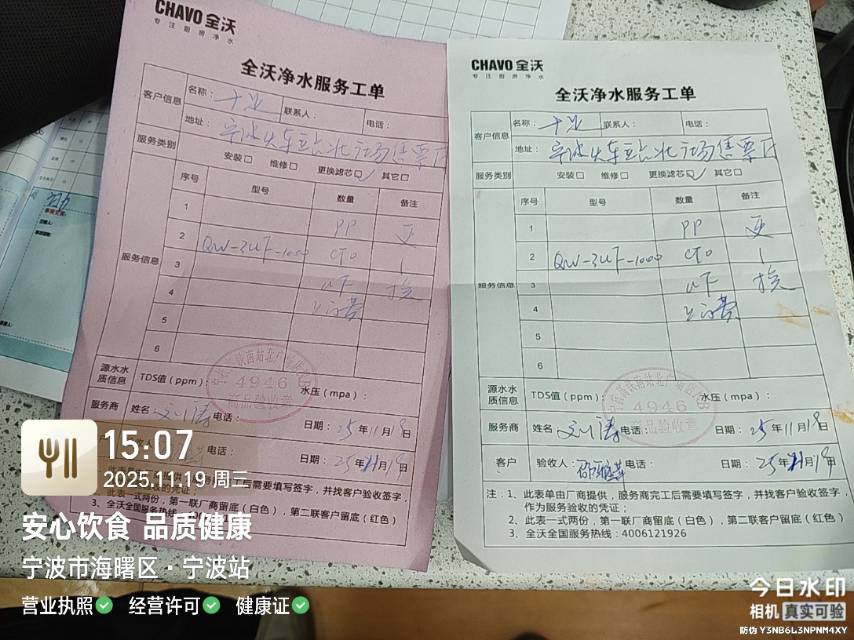 CHAVO 全沃
专注厨房净水
全沃净水服务工单
客户信息 名称： 联系人： 电话：
地址：宁波火车站北广场售票厅
服务类别 安装□ 维修□ 更换滤芯□✓ 其它□
服务信息 序号 型号 数量 备注
1 PP 更
2 QW-3UF-1000 CTO
3 UF 换
4
5
6
源水水质信息 TDS值（ppm）： 水压（mpa）：
4946
品验收章
服务商 姓名： 电话： 日期：25年11月19日
电话： 日期：25年11月19日
后需要填写签字，并找客户验收签字，
收的凭证；
2、此表一式两份，第一联厂商留底（白色），第二联客户留底（红色）
3、全沃全国服务热线：
CHAVO 全沃
专注厨房净水
全沃净水服务工单
客户信息 名称： 联系人： 电话：
地址：宁波火车站北广场售票厅
服务类别 安装□ 维修□ 更换滤芯□✓ 其它□
服务信息 序号 型号 数量 备注
1 PP 更
2 QW-3UF-1000 CTO
3 UF 换
4
5
6
源水水质信息 TDS值（ppm）： 水压（mpa）：
4946
品验收章
服务商 姓名 电话： 日期：25年11月19日
客户 验收人： 电话： 日期：25年11月19日
注：1、此表单由厂商提供，服务商完工后需要填写签字，并找客户验收签字，
作为服务验收的凭证；
2、此表一式两份，第一联厂商留底（白色），第二联客户留底（红色）
3、全沃全国服务热线：4006121926
15:07
2025.11.19 周三
安心饮食 品质健康
宁波市海曙区·宁波站
营业执照 经营许可 健康证
今日水印
相机 真实可验
防伪 Y3NB6L3NPNM4XY